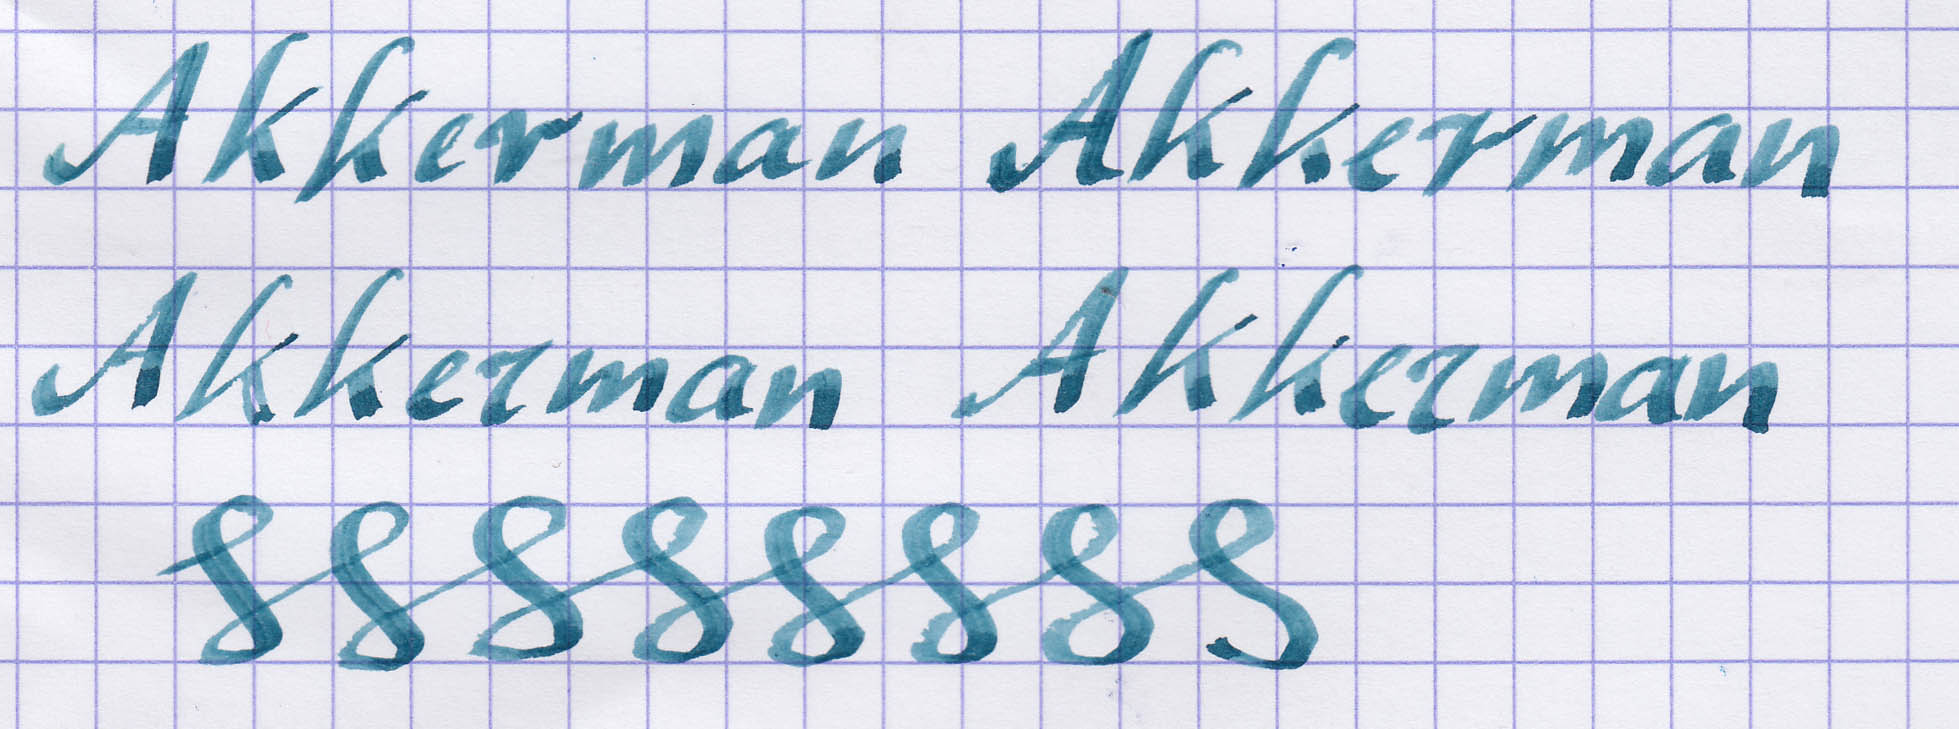 Akkerman Akkerman
Akkerman Akkerman
88888888